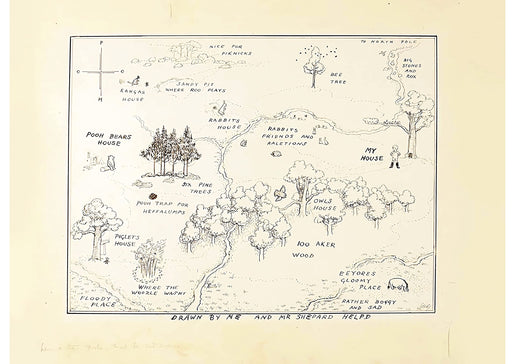 P
O
O
H
TO NORTH POLE
NICE FOR
PICKNICKS
BIG
STONES
AND
ROX
BEE
TREE
SANDY PIT
WHERE ROO PLAYS
KANGAS
HOUSE
RABBITS
HOUSE
RABBITS
FRIENDS AND
RALETIONS
POOH BEARS
HOUSE
MY
HOUSE
SIX PINE
TREES
POOH TRAP FOR
HEFFALUMPS
OWLS
HOUSE
PIGLETS
HOUSE
100 AKER
WOOD
WHERE THE
WOOZLE WASNT
FLOODY
PLACE
EEYORES
GLOOMY
PLACE
RATHER BOGGY
AND SAD
DRAWN BY ME AND MR SHEPARD HELPD